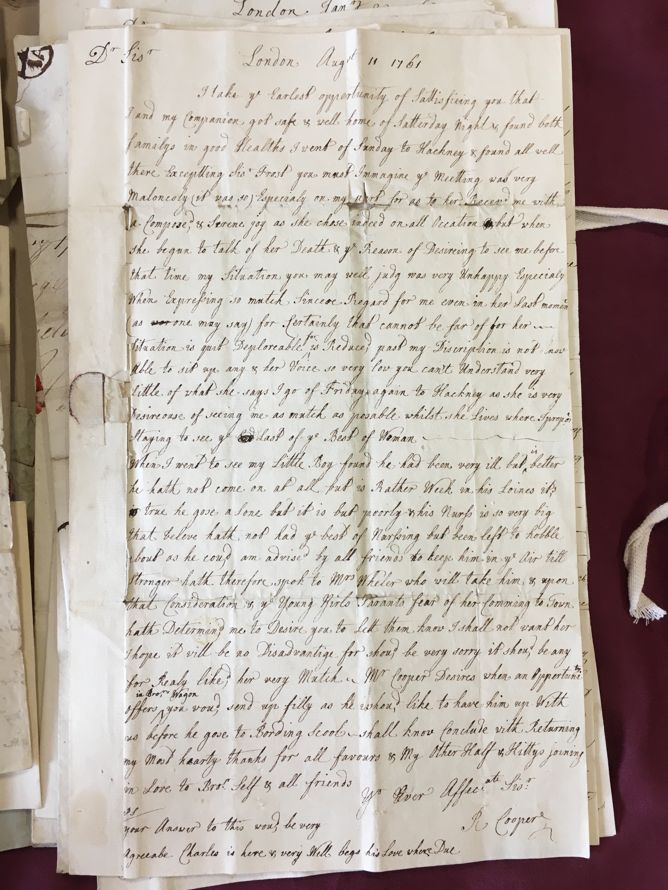 London Jan
Dr Sisr London Augst 11 1761
I take ye Earlest oppertunity of Sattisfieing you that
I and my Companion got safe & well home of Satterday Night & found both
familys in good Healths I went of Sunday to Hackney & found all well
there Excepting Sisr Frost you must Immagine ye Meetting was very
Maloncoly (it was so) Especialy on my part for as to her Receivd me with
a Composed & Serene joy as she chose indeed on all Occation but when
she begun to talk of her Death & ye Reason of Desireing to see me before
that time my Situation you may well judg was very Unhappy Especialy
When Expressing so mutch Sincere Regard for me even in her Last moments
(as one may say) for Certainly that cannot be far of for her
Situation is quit Deploreable is Reduced past my Discription is not now
Able to sit up any & her Voice so very low you can't Understand very
Little of what she says I go of Friday again to Hackney as she is very
Desireouse of seeing me as mutch as posable whilst she Lives where I
Staying to see ye Last of ye Best of Woman
When I went to see my Little Boy found he had been very ill but is better
he hath not come on at all but is Rather Week in his Loines its
true he gose alone but it is but poorly & his Nurss is so very big
that beleve hath not had ye best of Nurssing but been left to hobble
about as he coud am advised by all friends to keep him in ye Air till
Stronger hath therefore spok to Mrs Wheler who will take him & upon
that Consideration & ye Young Girls Parants fear of her Comming to Town
hath Determind me to Desire you to Lett them know I shall not want her
I hope it will be no Disadvantige for shoud be very sorry it shoud be any
for Realy liked her very Mutch Mr Cooper Desires when an Oppertunity
offers in Bror Wagon you woud send up filly as he whoud like to have him up With
us before he gose to Bording Scool shall know Conclude with Returning
my Most hearty thanks for all favours & My Other Half & Kittys joining
in Love to Bror Self & all friends
Yr Ever Affecate Sisr
R Cooper
ps
your Answer to this woud be very
Agreeabe Charles is here & very Well begs his Love where Due